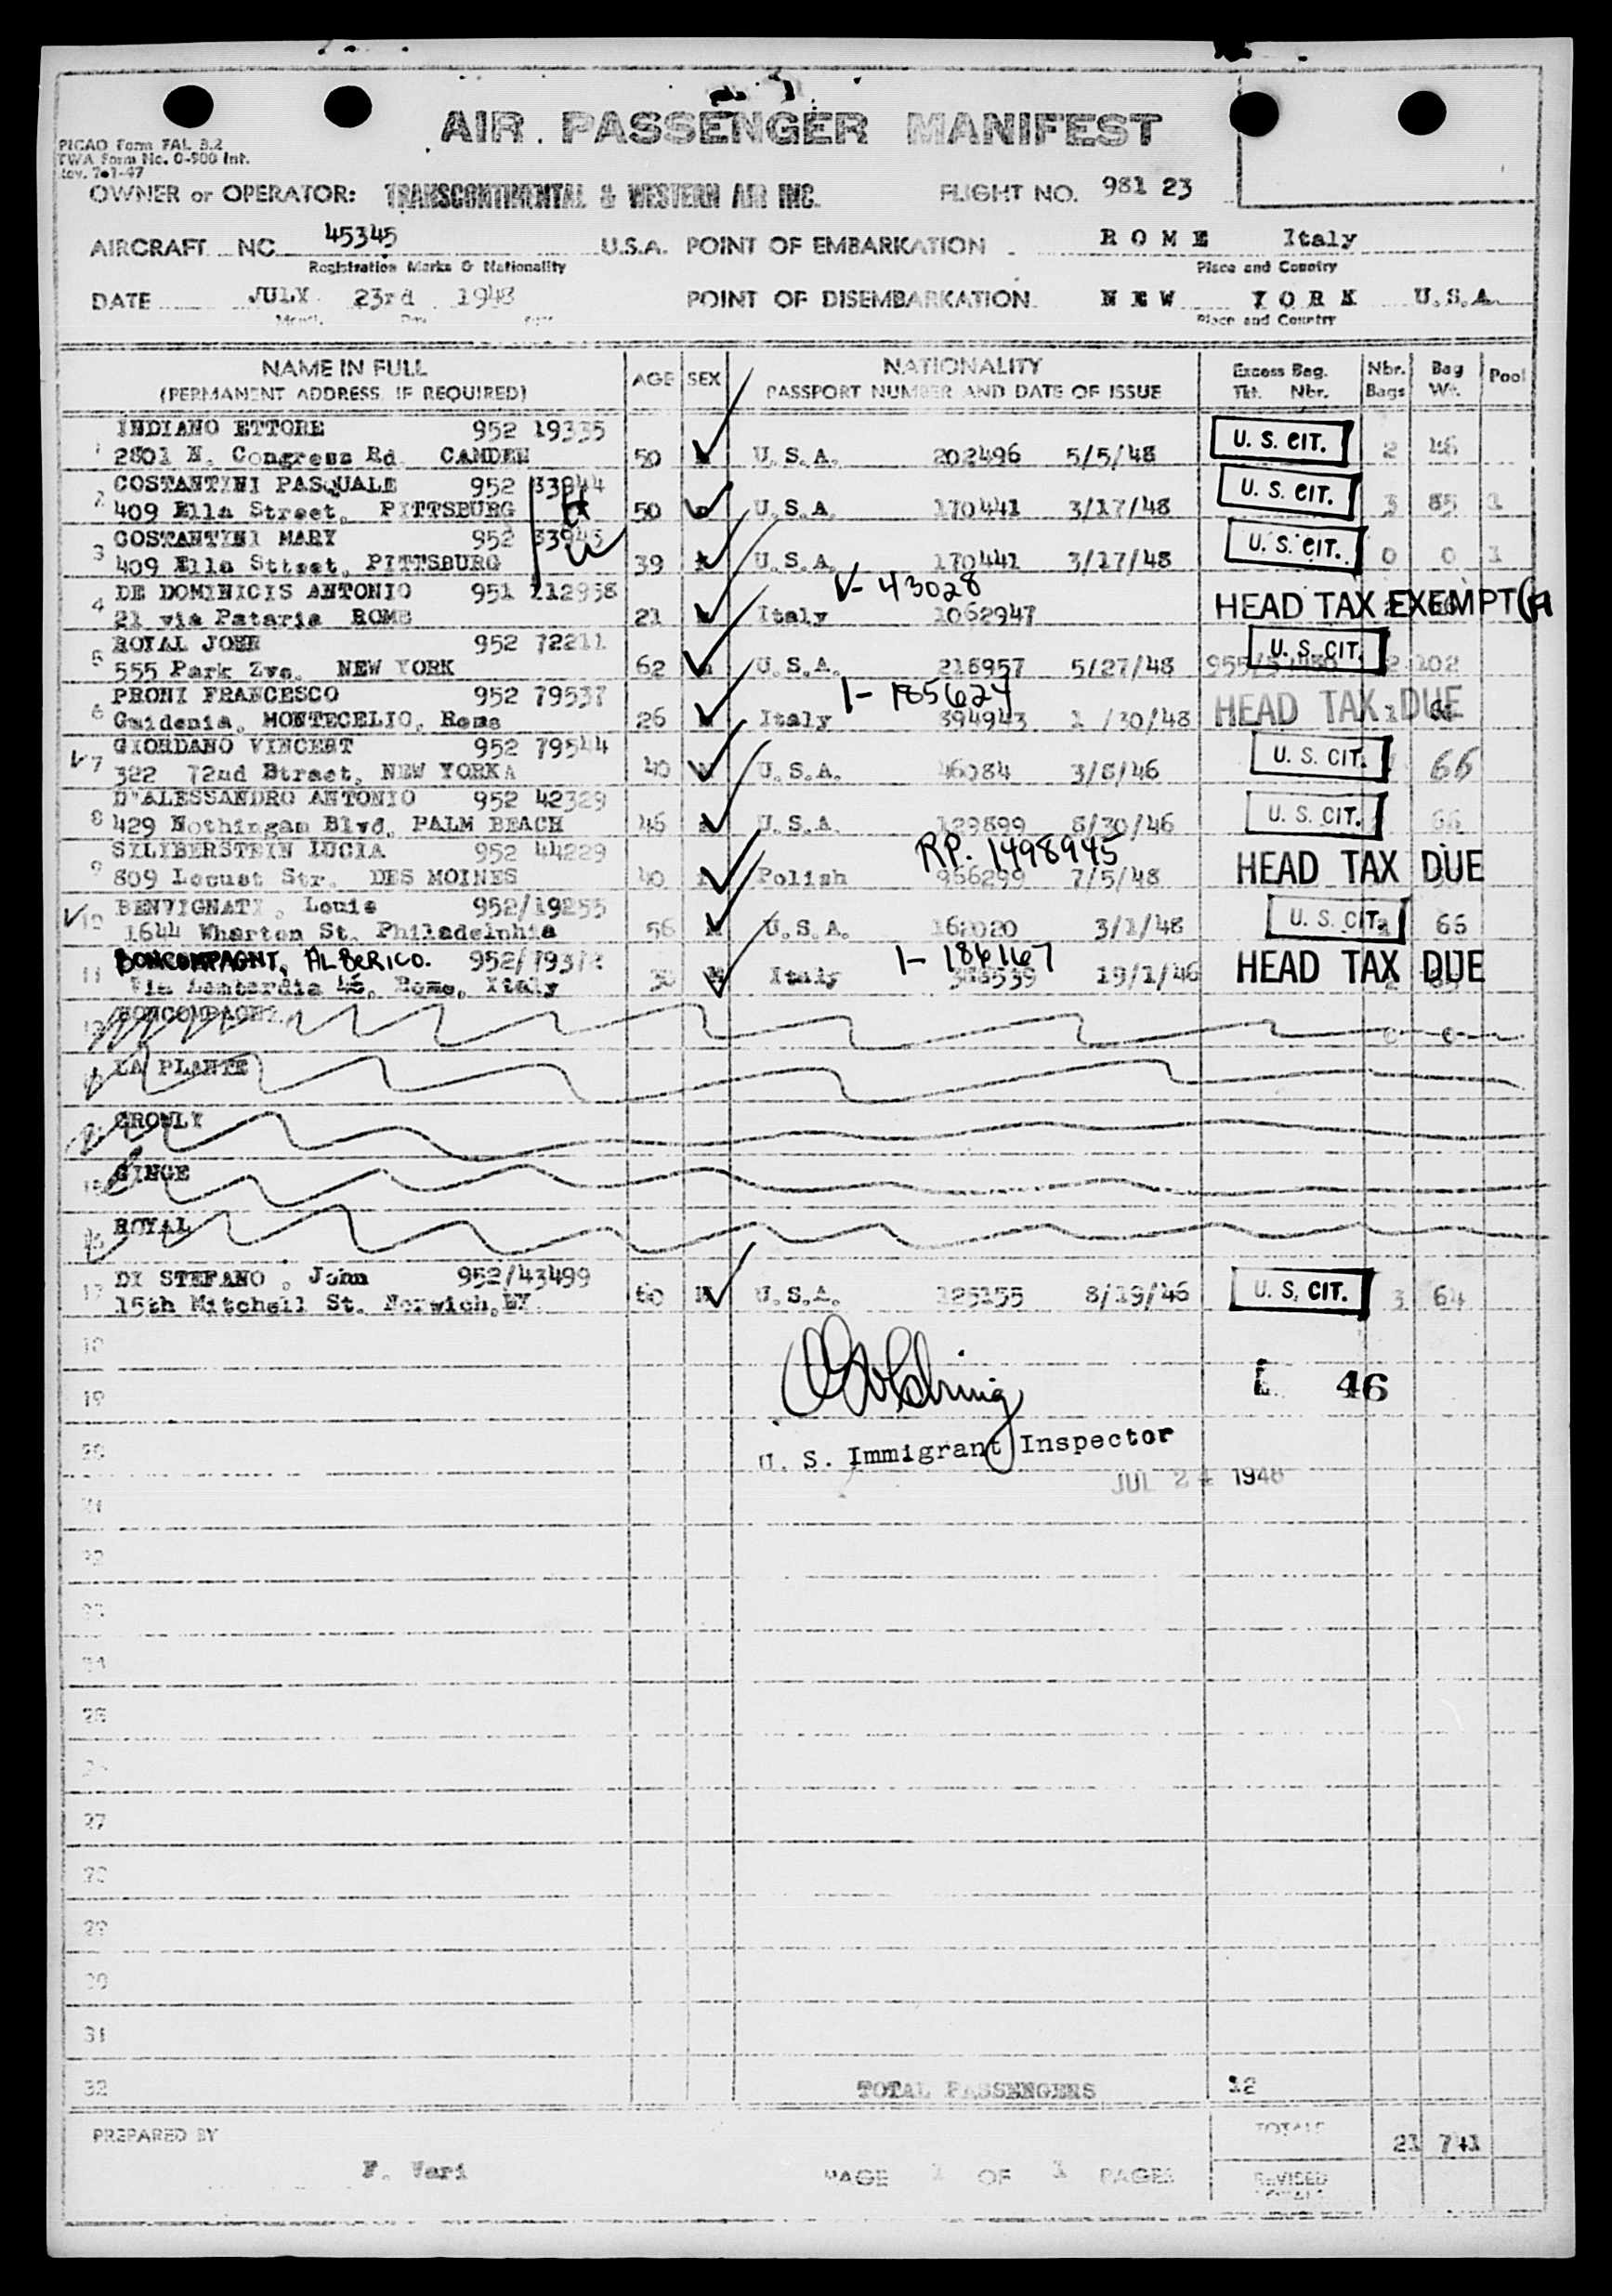 AIR PASSENGER MANIFEST
PICAO Form FAL 3.2
TWA Form No. O-900 Int.
Rev. 7-1-47
OWNER or OPERATOR: TRANSCONTINENTAL & WESTERN AIR INC. FLIGHT NO. 981 23
AIRCRAFT NC 45345 U.S.A. POINT OF EMBARKATION ROME Italy
Registration Marks & Nationality Place and Country
DATE JULY 23rd 1948 POINT OF DISEMBARKATION NEW YORK U.S.A.
Month Day Place and Country
NAME IN FULL AGE SEX NATIONALITY Excess Bag. Nbr. Bag Pool
(PERMANENT ADDRESS IF REQUIRED) PASSPORT NUMBER AND DATE OF ISSUE Tkt. Nbr. Bags Wt.
1 INDIANO ETTORE 952 19335
2801 N. Congress Rd CAMDEN 50 U.S.A. 202496 5/5/48 U. S. CIT. 2
2 COSTANTINI PASQUALE 952 33944
409 Ella Street, PITTSBURG 50 U.S.A. 170441 3/17/48 U. S. CIT. 3 85 1
3 COSTANTINI MARY 952 33945
409 Ella Stteet, PITTSBURG 39 U.S.A. 170441 3/17/48 U. S. CIT. 0 0 1
4 DE DOMINICIS ANTONIO 951 212958 V-43028
21 via Pataria ROME 21 Italy 1062947 HEAD TAX EXEMPT
5 ROYAL JOHN 952 72211
555 Park Zve. NEW YORK 62 U.S.A. 218957 5/27/48 U. S. CIT. 2 102
6 PRONI FRANCESCO 952 79537 I-185624
Guidonia, MONTECELIO, Rome 26 Italy 394943 1 /30/48 HEAD TAX DUE
7 GIORDANO VINCENT 952 79544
322 72nd Street, NEW YORKA 40 U.S.A. 46084 3/8/46 U. S. CIT. 66
8 D'ALESSANDRO ANTONIO 952 42329
429 Nothingam Blvd, PALM BEACH 46 U.S.A. 129899 8/30/46 U. S. CIT. 66
9 SILIBERSTEIN LUCIA 952 44229 RP. 1498945
809 Locust Str. DES MOINES 40 Polish 956299 7/5/48 HEAD TAX DUE
10 BENVIGNATI, Louis 952/19255
1644 Wharton St. Philadelphia 56 M U.S.A. 162020 3/1/48 U. S. CIT. 66
11 BONCOMPAGNI, ALBERICO. 952/7937 I-186167
Via Lombardia 46, Rome, Italy M Italy 19/1/46 HEAD TAX DUE
BONCOMPAGNI
LA PLANTE
CROWLY
GINGE
ROYAL
17 DI STEFANO, John 952/43499
15th Mitchell St. Norwich, NY 60 M U.S.A. 125155 8/19/46 U. S. CIT. 3 64
18
19 46
20 U. S. Immigrant Inspector
JUL 24 1948
21
22
23
24
25
27
28
29
30
31
32 TOTAL PASSENGERS 12
PREPARED BY TOTALS 21 741
F. Veri PAGE 1 OF 1 PAGES REVISED TOTALS